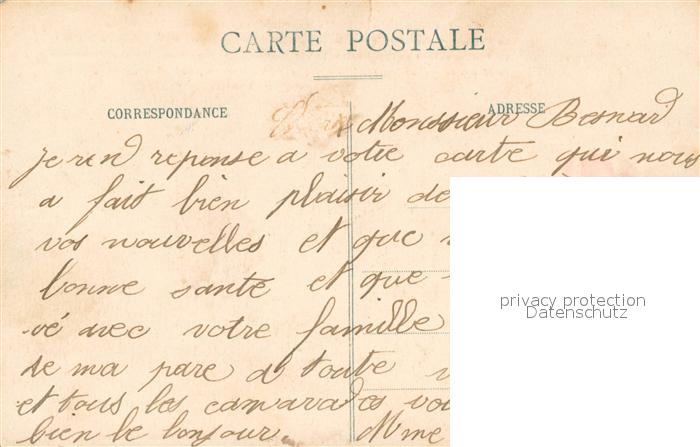 CARTE POSTALE
CORRESPONDANCE
ADRESSE
Monssieur Besnard
Je rend reponse a votre carte qui nous
a fait bien plaisir de
vos nouvelles et que
bonne santé et que
vé avec votre famille
de ma pare a toute
et tous les camarades vou
bien le bonjour. Mme
privacy protection
Datenschutz